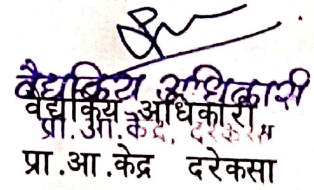 वैद्यकिय अधिकारी
वैद्यकिय अधिकारी
प्रा.आ.केंद्र, दरेकसा
प्रा.आ.केद्र दरेकसा